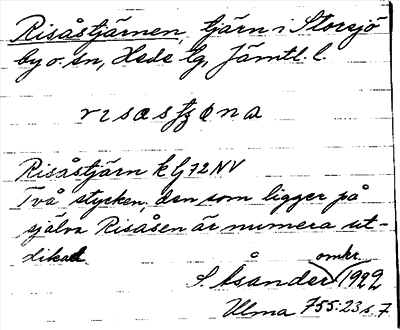 Risåstjärnen, tjärn i Storsjö
by o. sn, Hede tg, Jämtl. l.
Risåstjärn k G 72 NV
Två stycken, den som ligger på
själva Risåsen är numera ut-
dikad
omkr.
S. Åsander 1922
Ulma 755:23 s. 7